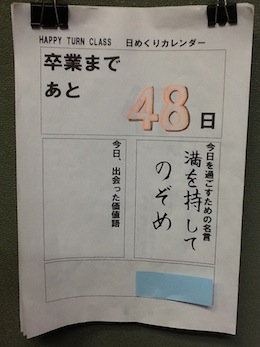 HAPPY TURN CLASS 日めくりカレンダー
卒業まで
あと
48日
今日を過ごすための名言
満を持して
のぞめ
今日、出会った価値語